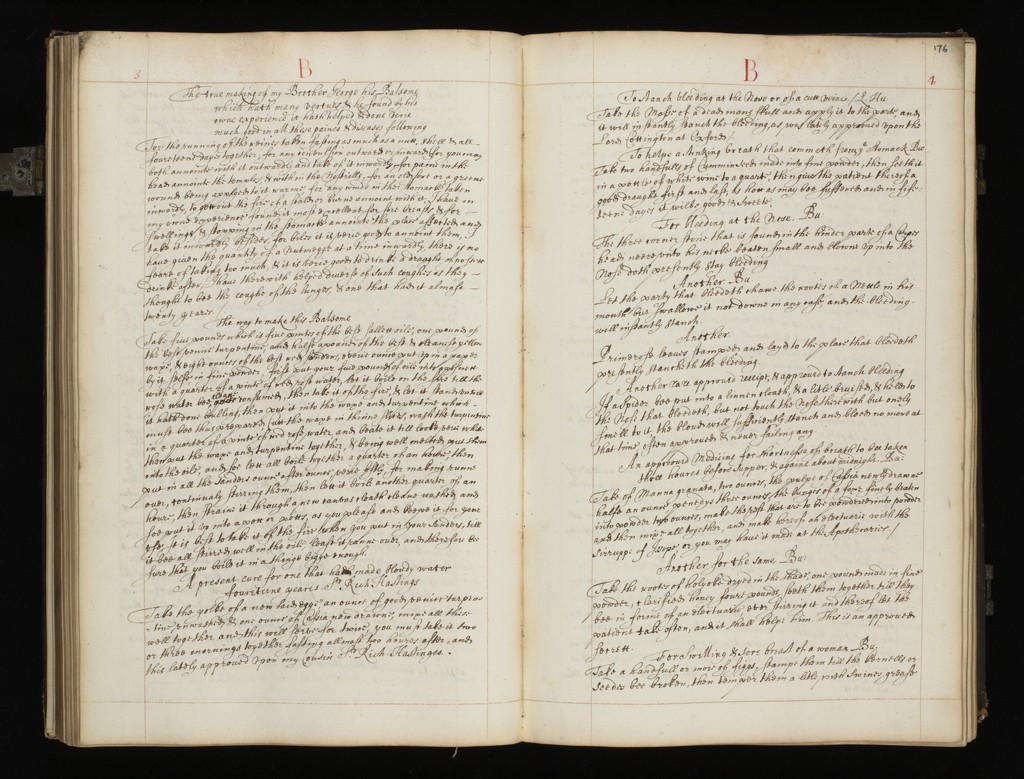 3
B
The true making of my Brother George his Balsome
which hath many vertues, & he found by his
owne experience it hath helped & done verie
much good in all these paines & diseases following
For the running of the reines taken fasting as much as a nutt, thrill & all-
fourteene dayes together, for any tention outward or inward for you may
both annointe with it outwardly and take of it inwardly for paine in the
head annointe the temples, & with in the Nostrills, for an old sore or a greene
wound being applyed to it warme, for any winde in the stomacke taken
inwardly, to gett out the fire of a scald or burne annoint with it. I have in
my owne experience found it most excellent for sore breasts & for
swellings, & stopping in the stomacke annointe the place affected and
take it inwardly besides, for biles it is verie good to annoint them, I
have given the quantity of a Nuttmegge at a time inwardly, there is no
feare of taking too much, & it is verie good to drinke a draught of possett
drinke after, I have therewith helped diverse of such coughes as they
thought to bee the coughe of the lunges, & one that had it almost
twenty yeares.
The way to make this Balsome
Take five pounds which is five pintes of the best sallett oile, one pound of
the best venice turpentine, and halfe a pound of the best & cleanest yellow
waxe, & eight ounces of the best red sanders, everie ounce put upon a paper
by it selfe in fine powder, first put your five pounds of oile into
with a quarter of a pinte of red rose water, let it boile on the fire till the
rose water bee cleane consumed, then take it of the fire, & let it stand untill
it hath done boiling, then put it into the waxe and turpentine which
must bee thus prepared, cutt the waxe in thinne slices, wash the turpentine
in a quarter of a pinte of red rose water, and beate it till looke verie white
then put the waxe and turpentine together, & being well melted put them
into the oile, and soe lett all boile together a quarter of an houre, then
put in all the sanders ounce after ounce, verie softly, for making runne
over, continualy stirring them, then lett it boile another quarter of an
houre, then straine it through a new canvas cloath cleane washed, and
soe put it up into a pott or potts, as you please and keepe it for your
use, it is best to take it of the fire when you put in your sanders, till
it bee all stirred well in the oile, least it runne over, and therefore bee
sure that you boile it in a thinge bigge enough.
A present cure for one that had made bloudy water
fourteene yeares Sr Rich Hastings
Take the yolke of a new laid egge, an ounce of good venice turpen-
tine, unwashed, & one ounce of Cassia new drawne, mixe all this
well together and this will serve for twice, you must take it two
or three mornings together fasting allmost two houres after, and
this lately approved upon my Cousin Sr Rich Hastinges.
176
B
4
To stanch bleeding at the Nose or of a cutt veine / L Hu
Take the Mosse of a dead mans skull and apply it to the part, and
it will instantly stanch the bleeding, as was lately approved upon the
Lord Cottington at Oxford /
To helpe a stinking breath that commeth from ye stomack Bu
Take two handfulls of Cumminseed made into fine powder, then seeth it
in a pottle of white wine to a quart, then give the patient thereof a
good draught first and last, as hott as may bee suffered and in fif-
teene dayes it wilbe good & sweete.
For bleeding at the Nose. Bu:
The three corner stone that is found in the hinder parte of a carpes
head neere unto his necke beaten small and blowne up into the
Nose doth presently stay bleeding
Another Bu
Let the party that bleedeth chawe the roote of a Nettle in his
mouth but swallowe it not downe in any case and the bleeding
will instantly stanch.
Another
Primerose leaves stamped and layd to the place that bleedeth
presently stancheth the bleeding.
Another rare approved receipt, & approved to stanch bleeding
If a spider bee put into a linnen cloath, & a litle bruised, & helde to
the Nose that bleedeth, but not touch the Nose therewith but onely
smell to it, the bloud will sufficiently stanch and bleed no more at
that time, often approved & never failing any.
An approved Medicine for shortnesse of breath to bee taken
three houres before supper, & againe about midnight. Bu:
Take of Manna granata, two ounces, the pulpe of Cassia newly drawne
halfe an ounce, penedyes three ounces, the lunges of a foxe finely beaten
into powder two ounces, make the rest that are to bee powdered into powder
and then mixe all together, and make hereof an electuarie with the
sirruppe of Isope, or you may have it made at the Apothecaries /
Another for the same Bu:
Take the rootes of holyoke dryed in the shade, one pound made in fine
powder, & clarified honey foure pounds, seeth them together, till they
bee in forme of an electuarie, ever stirring it and thereof let the
patient take often, and it shall helpe him. This is an approved
secrett.
For swelling & sore breast of a woman Bu:
Take a handfull or more of figgs, stampe them till the kernells or
seedes bee broken, then temper them a litle with swines grease